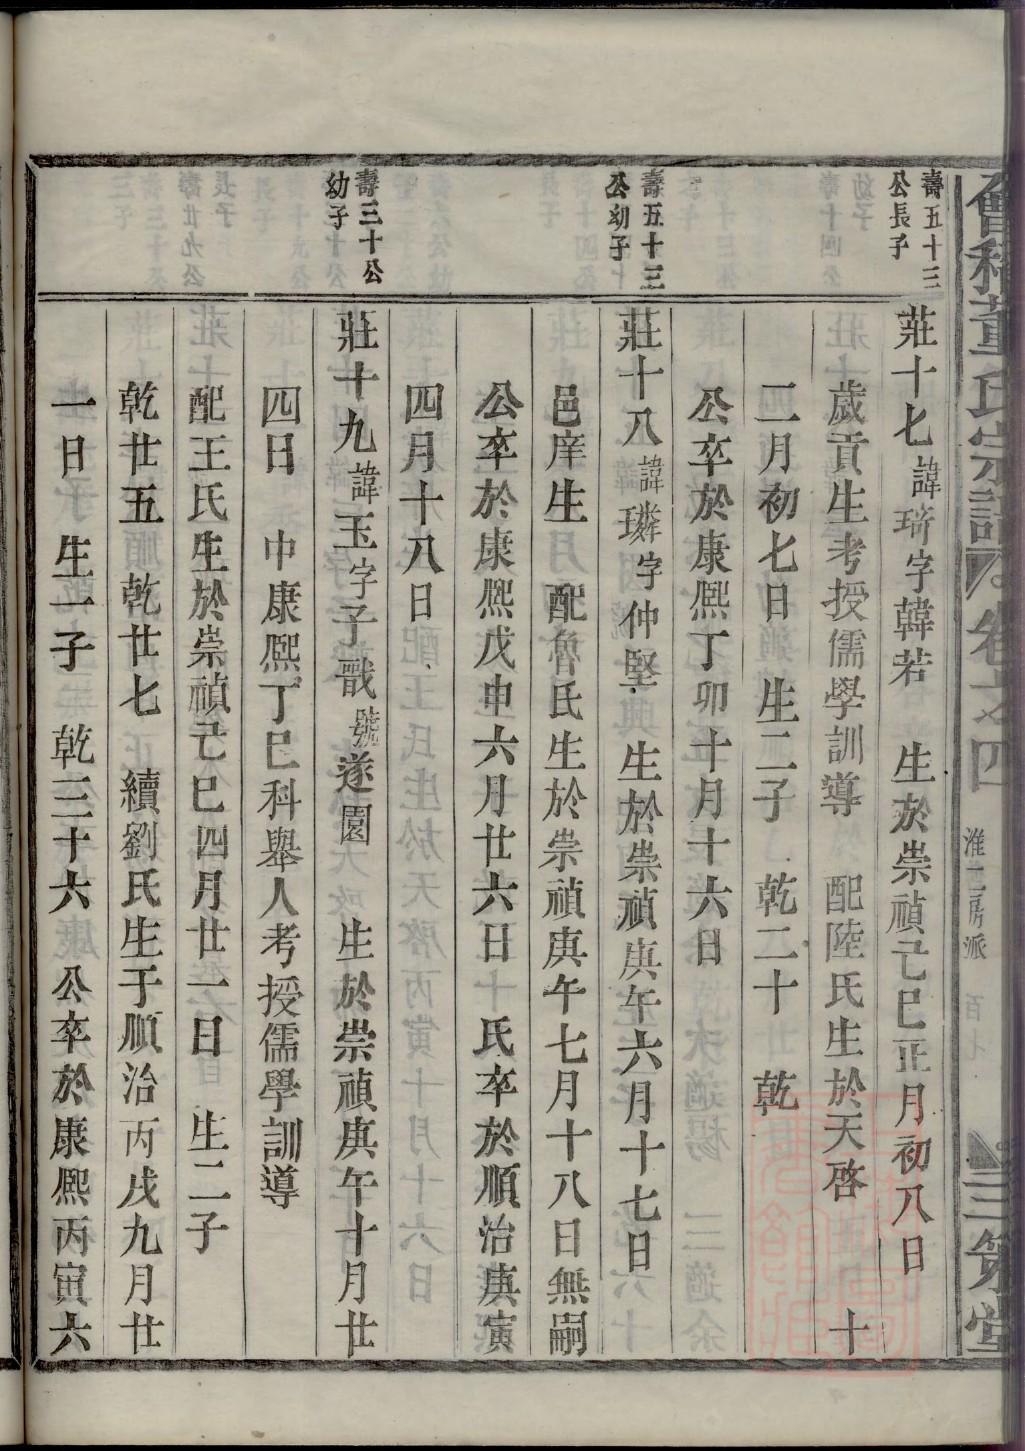 會稽董氏宗譜 卷之四 淮二房派 百七 三策堂
壽五十三
公長子
莊十七諱琦字韓若 生於崇禎己巳正月初八日
歲貢生考授儒學訓導 配陸氏生於天啓 十
二月初七日 生二子 乾二十 乾
公卒於康熙丁卯十月十六日
壽五十三
公幼子
莊十八諱璘字仲堅 生於崇禎庚午六月十七日
邑庠生 配魯氏生於崇禎庚午七月十八日無嗣
公卒於康熙戊申六月廿六日 氏卒於順治庚寅
四月十八日
壽三十公
幼子
莊十九諱玉字子戩號遂園 生於崇禎庚午十月廿
四日 中康熙丁巳科舉人考授儒學訓導
配王氏生於崇禎己巳四月廿一日 生二子
乾廿五乾廿七 續劉氏生于順治丙戌九月廿
一日 生一子 乾三十六 公卒於康熙丙寅六